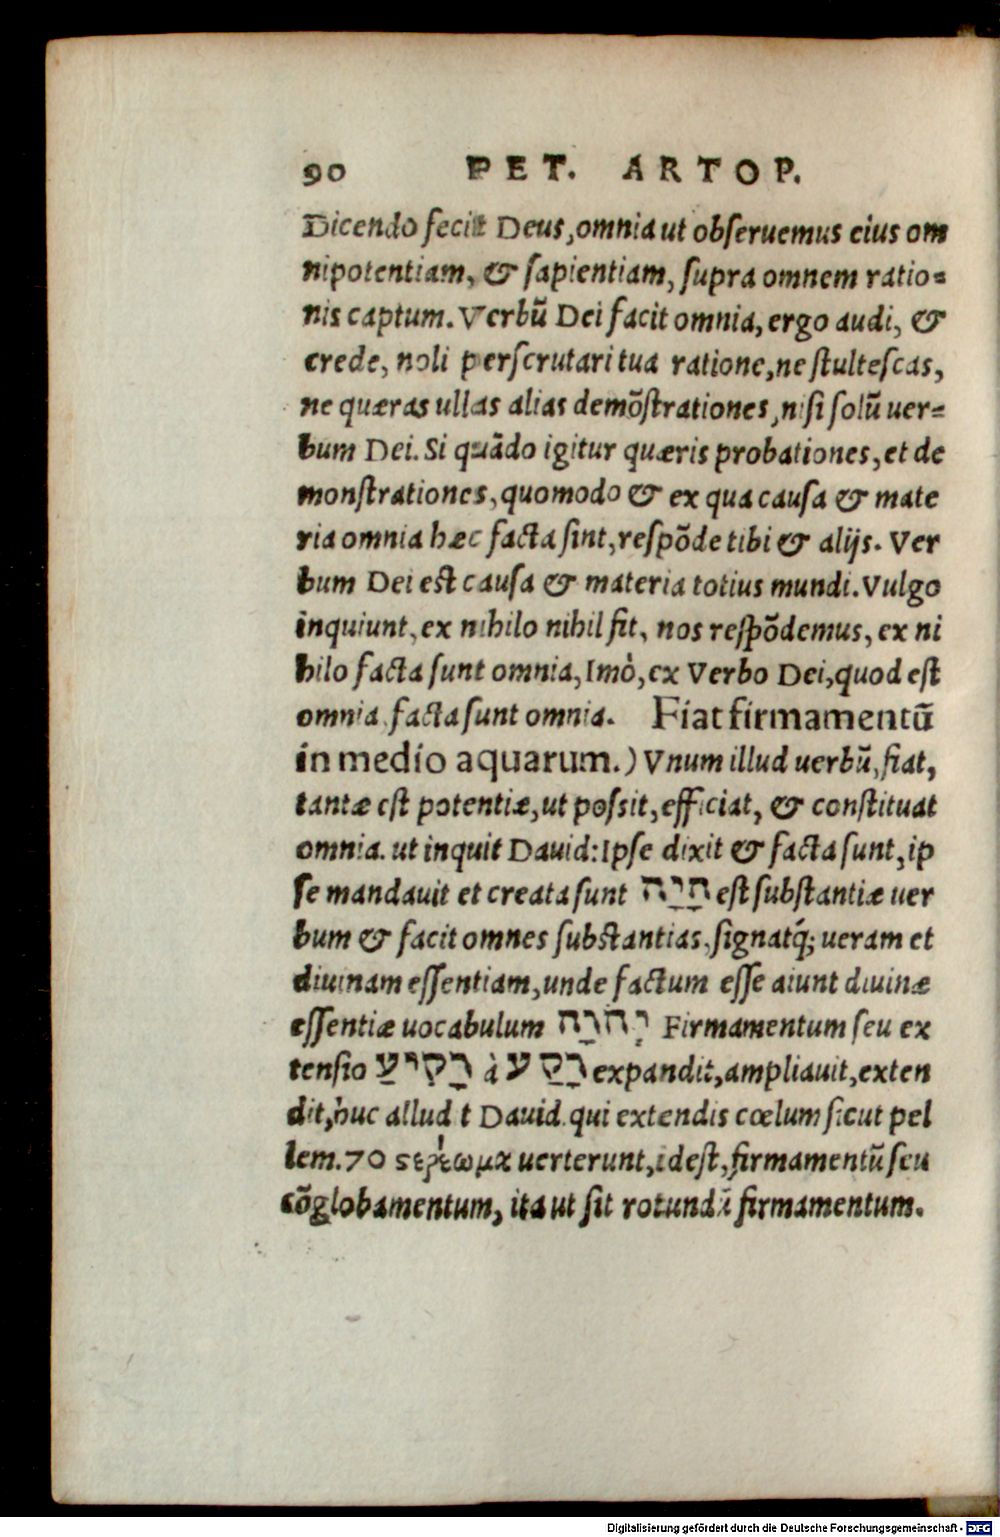 90 PET. ARTOP.
Dicendo fecit Deus, omnia ut obseruemus eius om
nipotentiam, & sapientiam, supra omnem ratio=
nis captum. Verbũ Dei facit omnia, ergo audi, &
crede, noli perscrutari tua ratione, ne stultescas,
ne quæras ullas alias demõstrationes, nisi solũ uer=
bum Dei. Si quãdo igitur quæris probationes, et de
monstrationes, quomodo & ex qua causa & mate
ria omnia hæc facta sint, respõde tibi & alijs. Ver
bum Dei est causa & materia totius mundi. Vulgo
inquiunt, ex nihilo nihil fit, nos respõdemus, ex ni
hilo facta sunt omnia, Imò, ex Verbo Dei, quod est
omnia facta sunt omnia. Fiat firmamentũ
in medio aquarum.) Vnum illud uerbũ, fiat,
tantæ est potentiæ, ut possit, efficiat, & constituat
omnia. ut inquit Dauid: Ipse dixit & facta sunt, ip
se mandauit et creata sunt הָיָה est substantiæ uer
bum & facit omnes substantias, signatq́; ueram et
diuinam essentiam, unde factum esse aiunt diuinæ
essentiæ uocabulum יְהֹוָה Firmamentum seu ex
tensio רָקִיעַ à רָקַע expandit, ampliauit, exten
dit, huc allud t Dauid. qui extendis cœlum sicut pel
lem. 70 ςερέωμα uerterunt, idest, firmamentũ seu
cõglobamentum, ita ut sit rotundũ firmamentum.
Digitalisierung gefördert durch die Deutsche Forschungsgemeinschaft - DFG